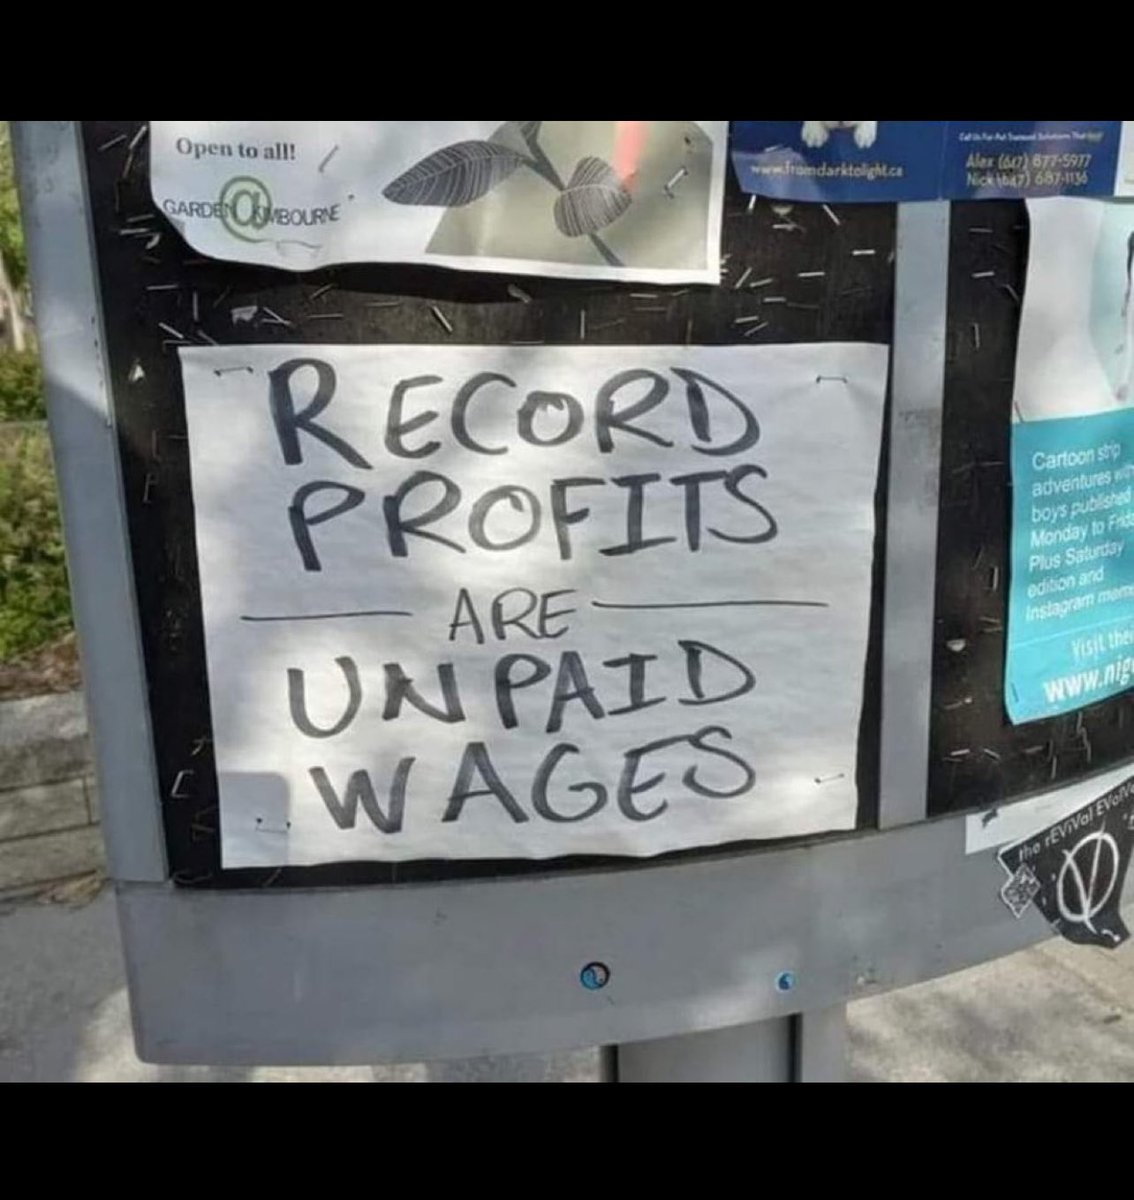 Open to all!
GARDEN @ KIMBOURNE
www.fromdarktolight.ca
Alex (647) 877-5977
Nick (647) 687-1136
RECORD
PROFITS
ARE
UNPAID
WAGES
Cartoon strip
adventures
boys published
Monday to
Plus Saturday
edition and
Instagram
Visit
the rEViVal